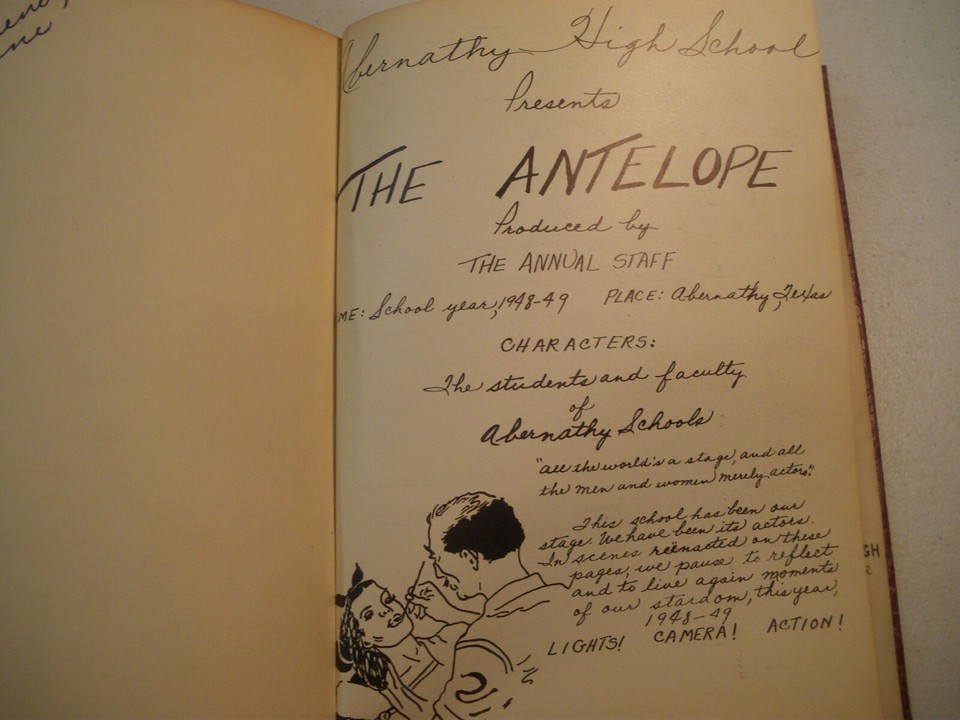 Abernathy High School
Presents
THE ANTELOPE
Produced by
THE ANNUAL STAFF
ME: School year, 1948-49 PLACE: Abernathy, Texas
CHARACTERS:
The students and faculty
of
Abernathy Schools
"all the world's a stage, and all
the men and women merely actors".
This school has been our
stage. We have been its actors.
In scenes reënacted on these
pages, we pause to reflect
and to live again moments
of our stardom, this year,
1948-49
LIGHTS! CAMERA! ACTION!
GH